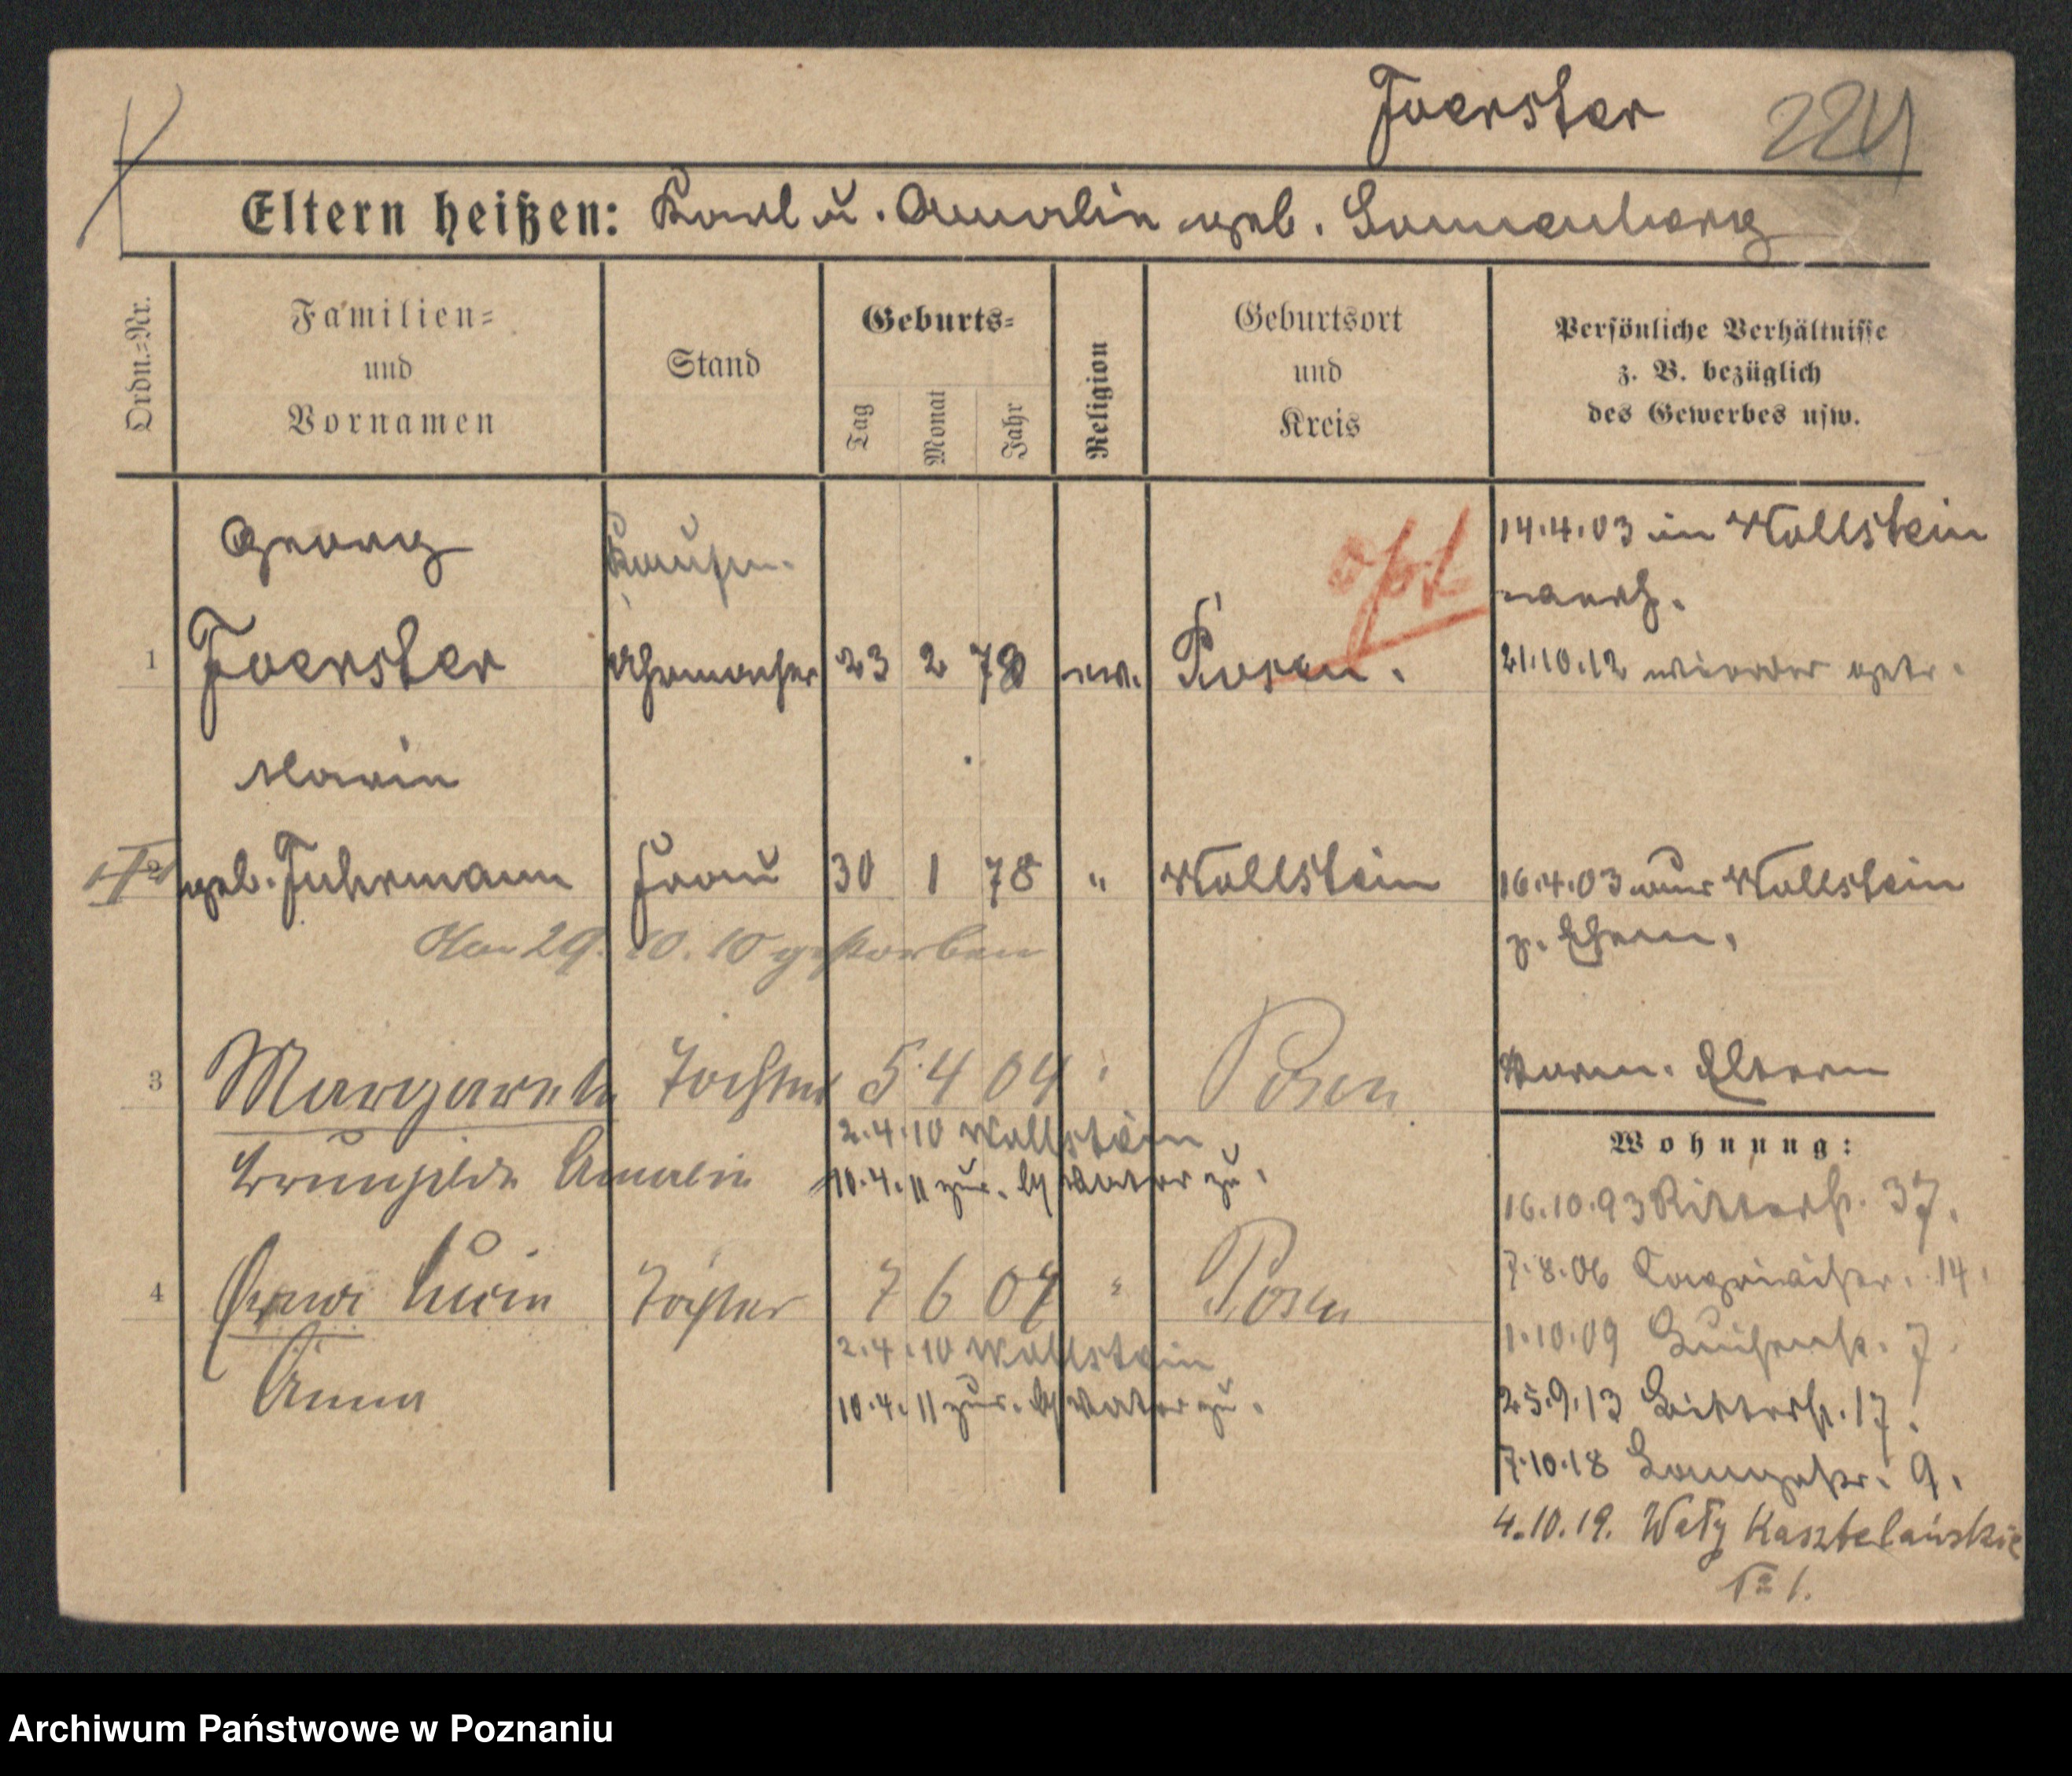 Foerster 224
Eltern heißen: Karl u. Amalie geb. Sonnenberg
Ordn.=Nr.
Familien=
und
Vornamen
Stand
Geburts=
Tag
Monat
Jahr
Religion
Geburtsort
und
Kreis
Persönliche Verhältnisse
z. B. bezüglich
des Gewerbes usw.
Georg
Kaufm.
opt
14.4.03 in Wollstein
verh.
1 Foerster Uhrmacher 23 2 78 ev. Posen.
21.10.12 wieder getr.
Marie
2 geb. Fuhrmann Frau 30 1 78 " Wollstein
16.4.03 aus Wollstein
z. Ehem.
29.10.10 gestorben
3 Margarete Tochter 5.4 04 Posen
Eltern
2.4.10 Wollstein
Brunhilde Amalie
10.4.11 zur. Vater zu.
Wohnung:
16.10.93 Ritterstr. 37.
4 Lucie Tochter 7 6 07 " Posen
7.8.06 14.
2.4.10 Wollstein
1.10.09 Luisenstr. 7
Anna
10.4.11 zur. Vater zu.
25.9.13 17.
7.10.18 Langestr. 9.
4.10.19. Wały Kasztelańskie
1.
Archiwum Państwowe w Poznaniu